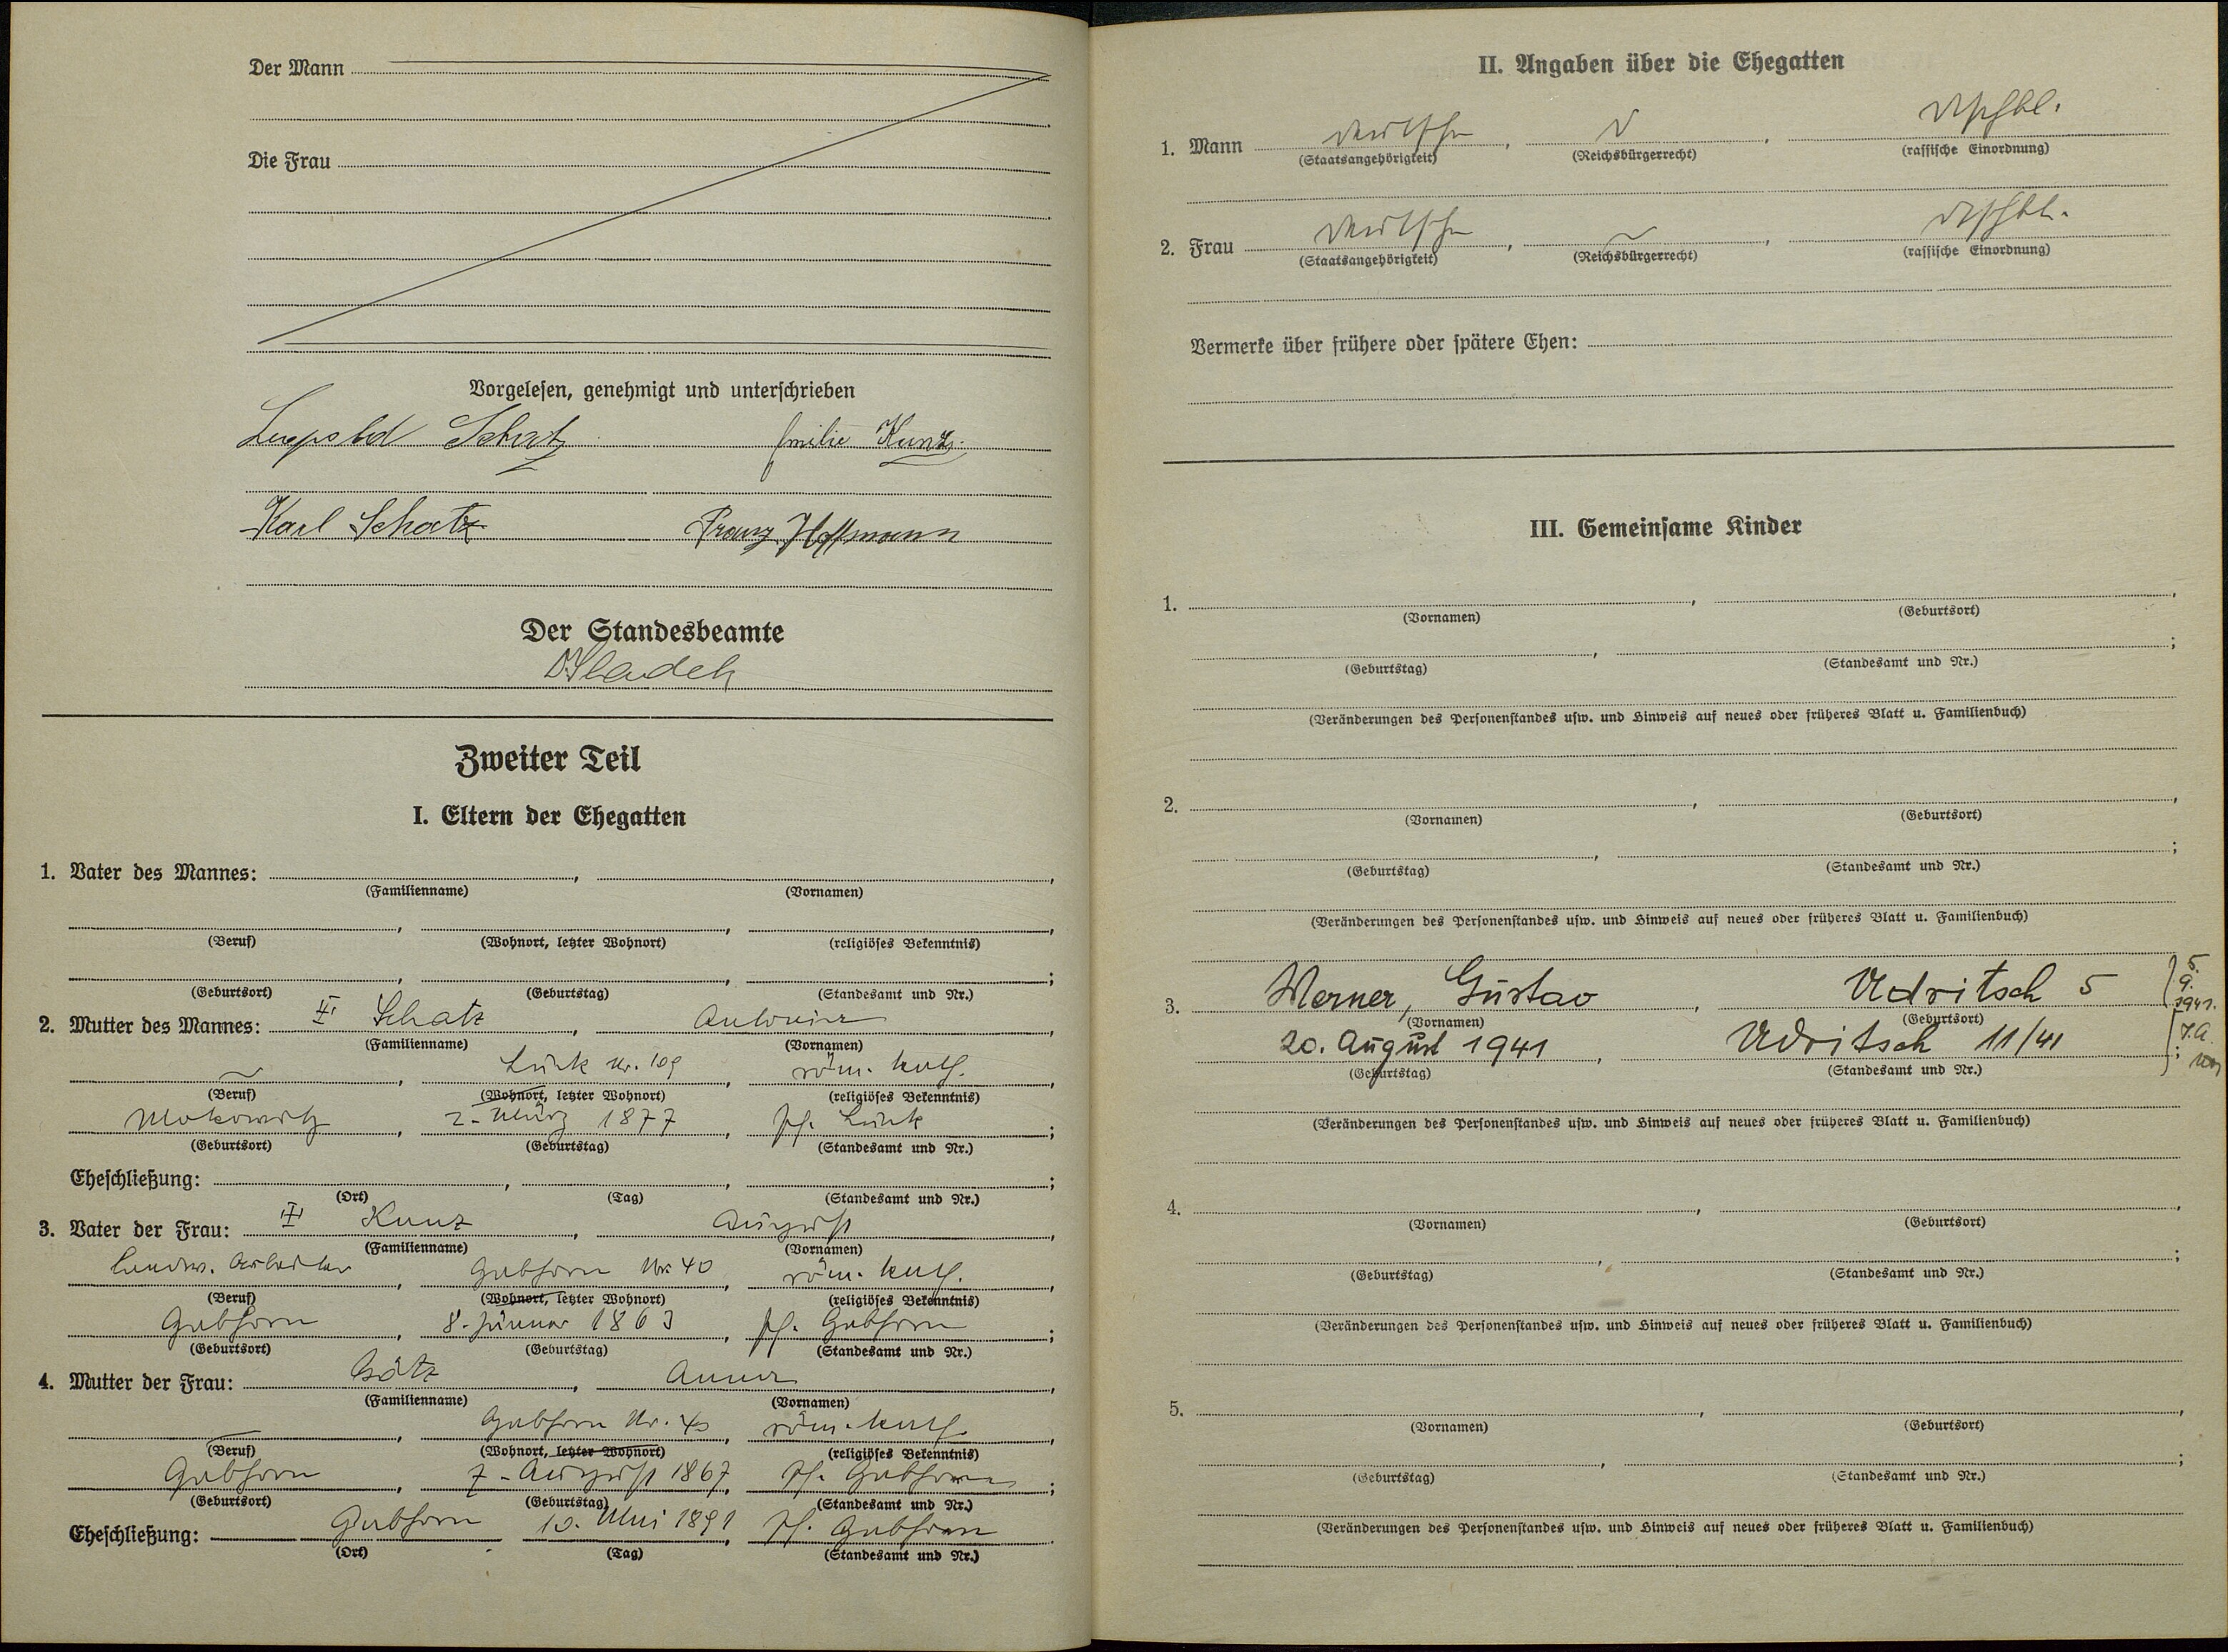 Der Mann
Die Frau
Vorgelesen, genehmigt und unterschrieben
Leopold Schatz Emilie Kunz.
Karl Schatz Franz Hoffmann
Der Standesbeamte
Zweiter Teil
I. Eltern der Ehegatten
1. Vater des Mannes: , ,
(Familienname) (Vornamen)
, , ,
(Beruf) (Wohnort, letzter Wohnort) (religiöses Bekenntnis)
, , ;
(Geburtsort) (Geburtstag) (Standesamt und Nr.)
2. Mutter des Mannes: ⚔ Schatz , Antonia ,
(Familienname) (Vornamen)
~ , Luck Nr. 109 , röm. kath. ,
(Beruf) (Wohnort, letzter Wohnort) (religiöses Bekenntnis)
Mokowitz , 2. März 1877 , Pf. Luck ;
(Geburtsort) (Geburtstag) (Standesamt und Nr.)
Eheschließung: , , ;
(Ort) (Tag) (Standesamt und Nr.)
3. Vater der Frau: Kunz , August ,
(Familienname) (Vornamen)
Landw. Arbeiter , Gabhorn Nr. 40 , röm. kath. ,
(Beruf) (Wohnort, letzter Wohnort) (religiöses Bekenntnis)
Gabhorn , 8. Jänner 1863 , Pf. Gabhorn ;
(Geburtsort) (Geburtstag) (Standesamt und Nr.)
4. Mutter der Frau: Götz , Anna ,
(Familienname) (Vornamen)
, Gabhorn Nr. 40 , röm. kath. ,
(Beruf) (Wohnort, letzter Wohnort) (religiöses Bekenntnis)
Gabhorn , 7. August 1867 , Pf. Gabhorn ;
(Geburtsort) (Geburtstag) (Standesamt und Nr.)
Eheschließung: Gabhorn 10. Mai 1891 , Pf. Gabhorn
(Ort) (Tag) (Standesamt und Nr.)
II. Angaben über die Ehegatten
1. Mann deutsche , , dtschbl.
(Staatsangehörigkeit) (Reichsbürgerrecht) (rassische Einordnung)
2. Frau deutsche , ~ , dtschbl.
(Staatsangehörigkeit) (Reichsbürgerrecht) (rassische Einordnung)
Vermerke über frühere oder spätere Ehen:
III. Gemeinsame Kinder
1. , ,
(Vornamen) (Geburtsort)
, ;
(Geburtstag) (Standesamt und Nr.)
(Veränderungen des Personenstandes usw. und Hinweis auf neues oder früheres Blatt u. Familienbuch)
2. , ,
(Vornamen) (Geburtsort)
, ;
(Geburtstag) (Standesamt und Nr.)
(Veränderungen des Personenstandes usw. und Hinweis auf neues oder früheres Blatt u. Familienbuch)
3. Werner, Gustav , Udritsch 5 5. 9. 1941.
(Vornamen) (Geburtsort)
20. August 1941 , Udritsch 11/41 ;
(Geburtstag) (Standesamt und Nr.)
(Veränderungen des Personenstandes usw. und Hinweis auf neues oder früheres Blatt u. Familienbuch)
4. , ,
(Vornamen) (Geburtsort)
, ;
(Geburtstag) (Standesamt und Nr.)
(Veränderungen des Personenstandes usw. und Hinweis auf neues oder früheres Blatt u. Familienbuch)
5. , ,
(Vornamen) (Geburtsort)
, ;
(Geburtstag) (Standesamt und Nr.)
(Veränderungen des Personenstandes usw. und Hinweis auf neues oder früheres Blatt u. Familienbuch)